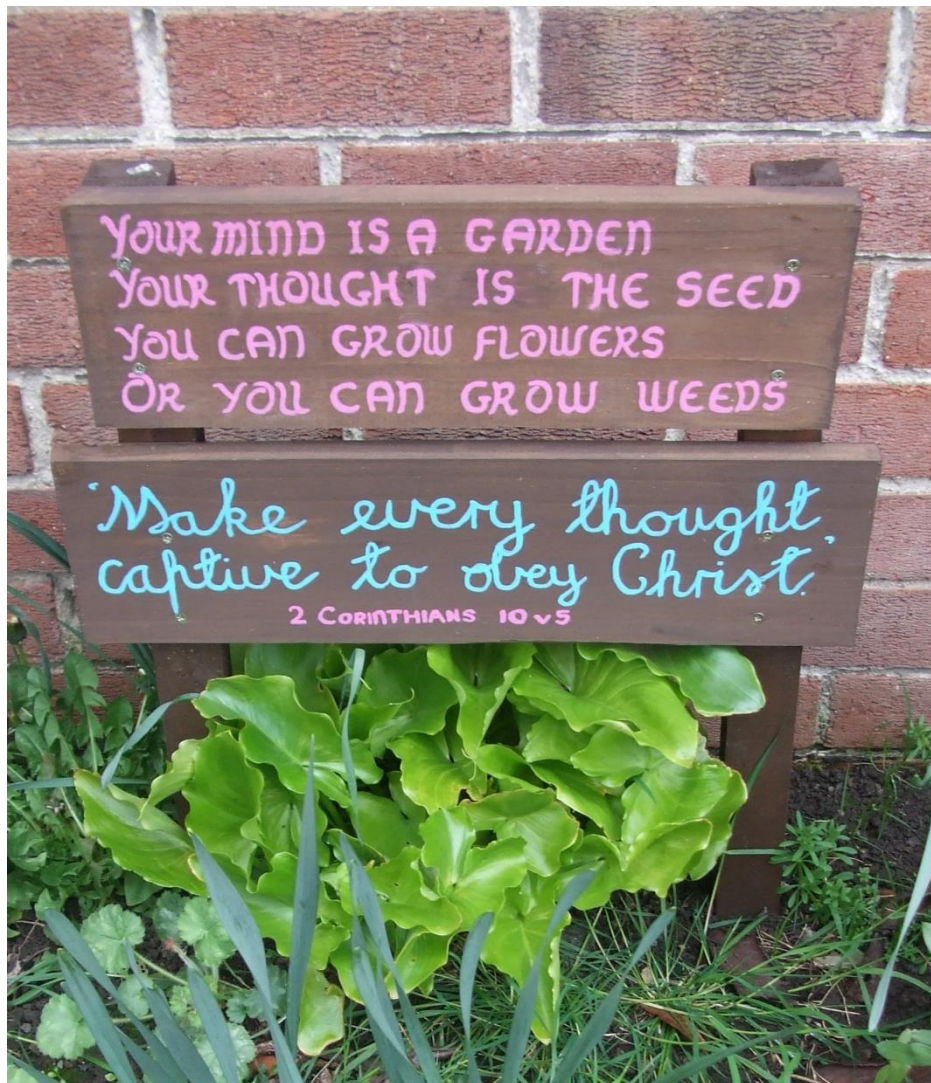 YOUR MIND IS A GARDEN
YOUR THOUGHT IS THE SEED
YOU CAN GROW FLOWERS
OR YOU CAN GROW WEEDS
'Make every thought
captive to obey Christ.'
2 CORINTHIANS 10v5